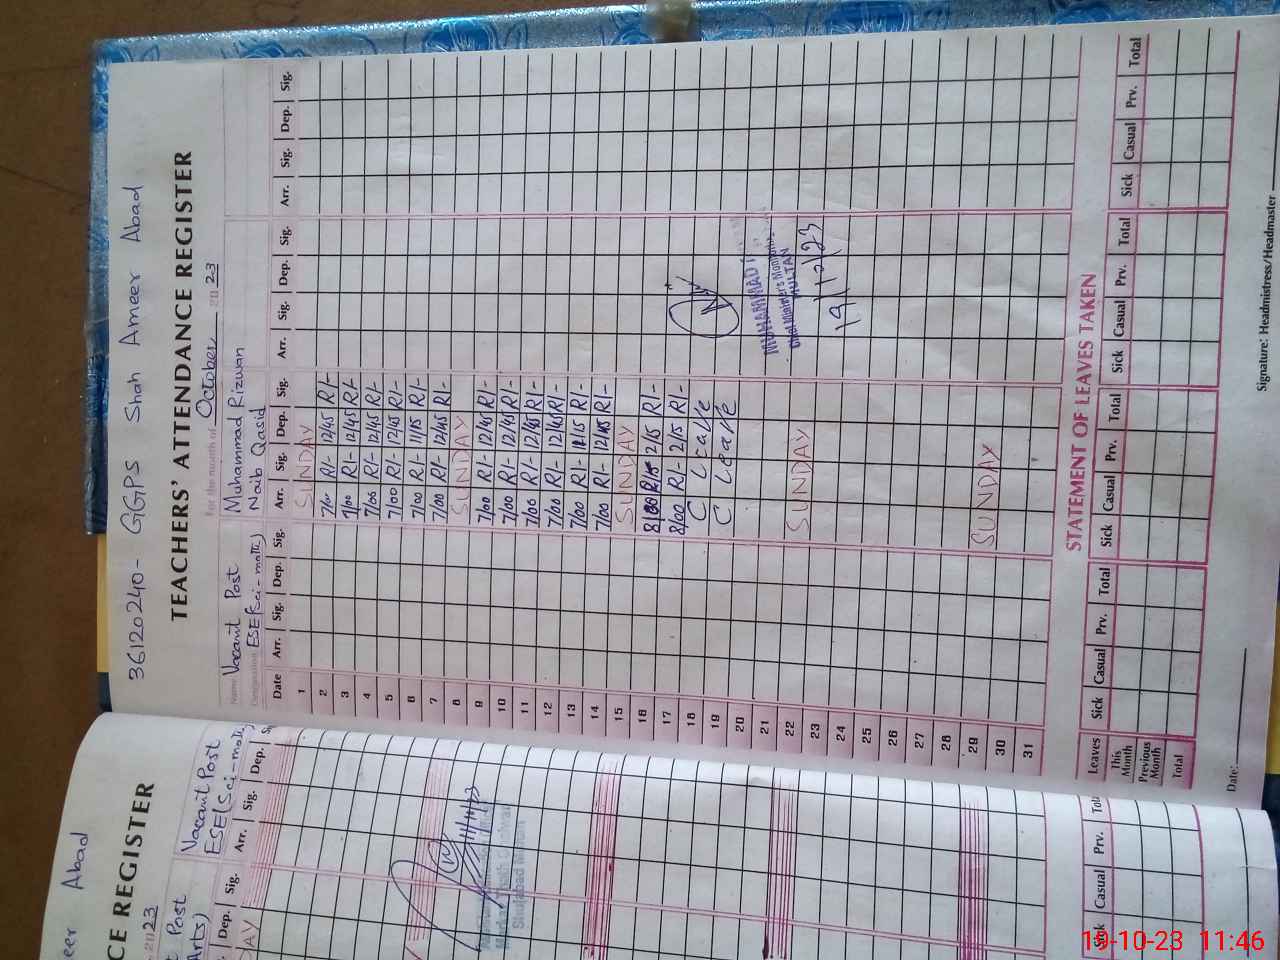 36120240- GGPS Shah Ameer Abad
TEACHERS' ATTENDANCE REGISTER
For the month of October 2023
Name Vacant Post Muhammad Rizwan
Designation ESE(Sci-math) Naib Qasid
Date Arr. Sig. Dep. Sig. Arr. Sig. Dep. Sig. Arr. Sig. Dep. Sig. Arr. Sig. Dep. Sig.
1 SUNDAY
2 7/00 R/- 12/45 R/-
3 7/00 R/- 12/45 R/-
4 7/00 R/- 12/45 R/-
5 7/00 R/- 12/45 R/-
6 7/00 R/- 11/15 R/-
7 7/00 R/- 12/45 R/-
8 SUNDAY
9 7/00 R/- 12/45 R/-
10 7/00 R/- 12/45 R/-
11 7/00 R/- 12/45 R/-
12 7/00 R/- 12/45 R/-
13 7/00 R/- 11/15 R/-
14 7/00 R/- 12/45 R/-
15 SUNDAY
16 8/00 R/- 2/15 R/-
17 8/00 R/- 2/15 R/-
18 C Leave
19 C Leave
20
21 MUHAMMAD
22 SUNDAY MULTAN
23
24
25
26
27
28
29 SUNDAY
30
31
STATEMENT OF LEAVES TAKEN
Leaves Sick Casual Prv. Total Sick Casual Prv. Total Sick Casual Prv. Total Sick Casual Prv. Total
This Month
Previous Month
Total
Date: Signature: Headmistress/Headmaster
eer Abad
CE REGISTER
2023
Post Vacant Post
Arts) ESE(Sci-math)
Dep. Sig. Arr. Sig. Dep.
DAY
Shujabad Multan
Sick Casual Prv. Total
19-10-23 11:46